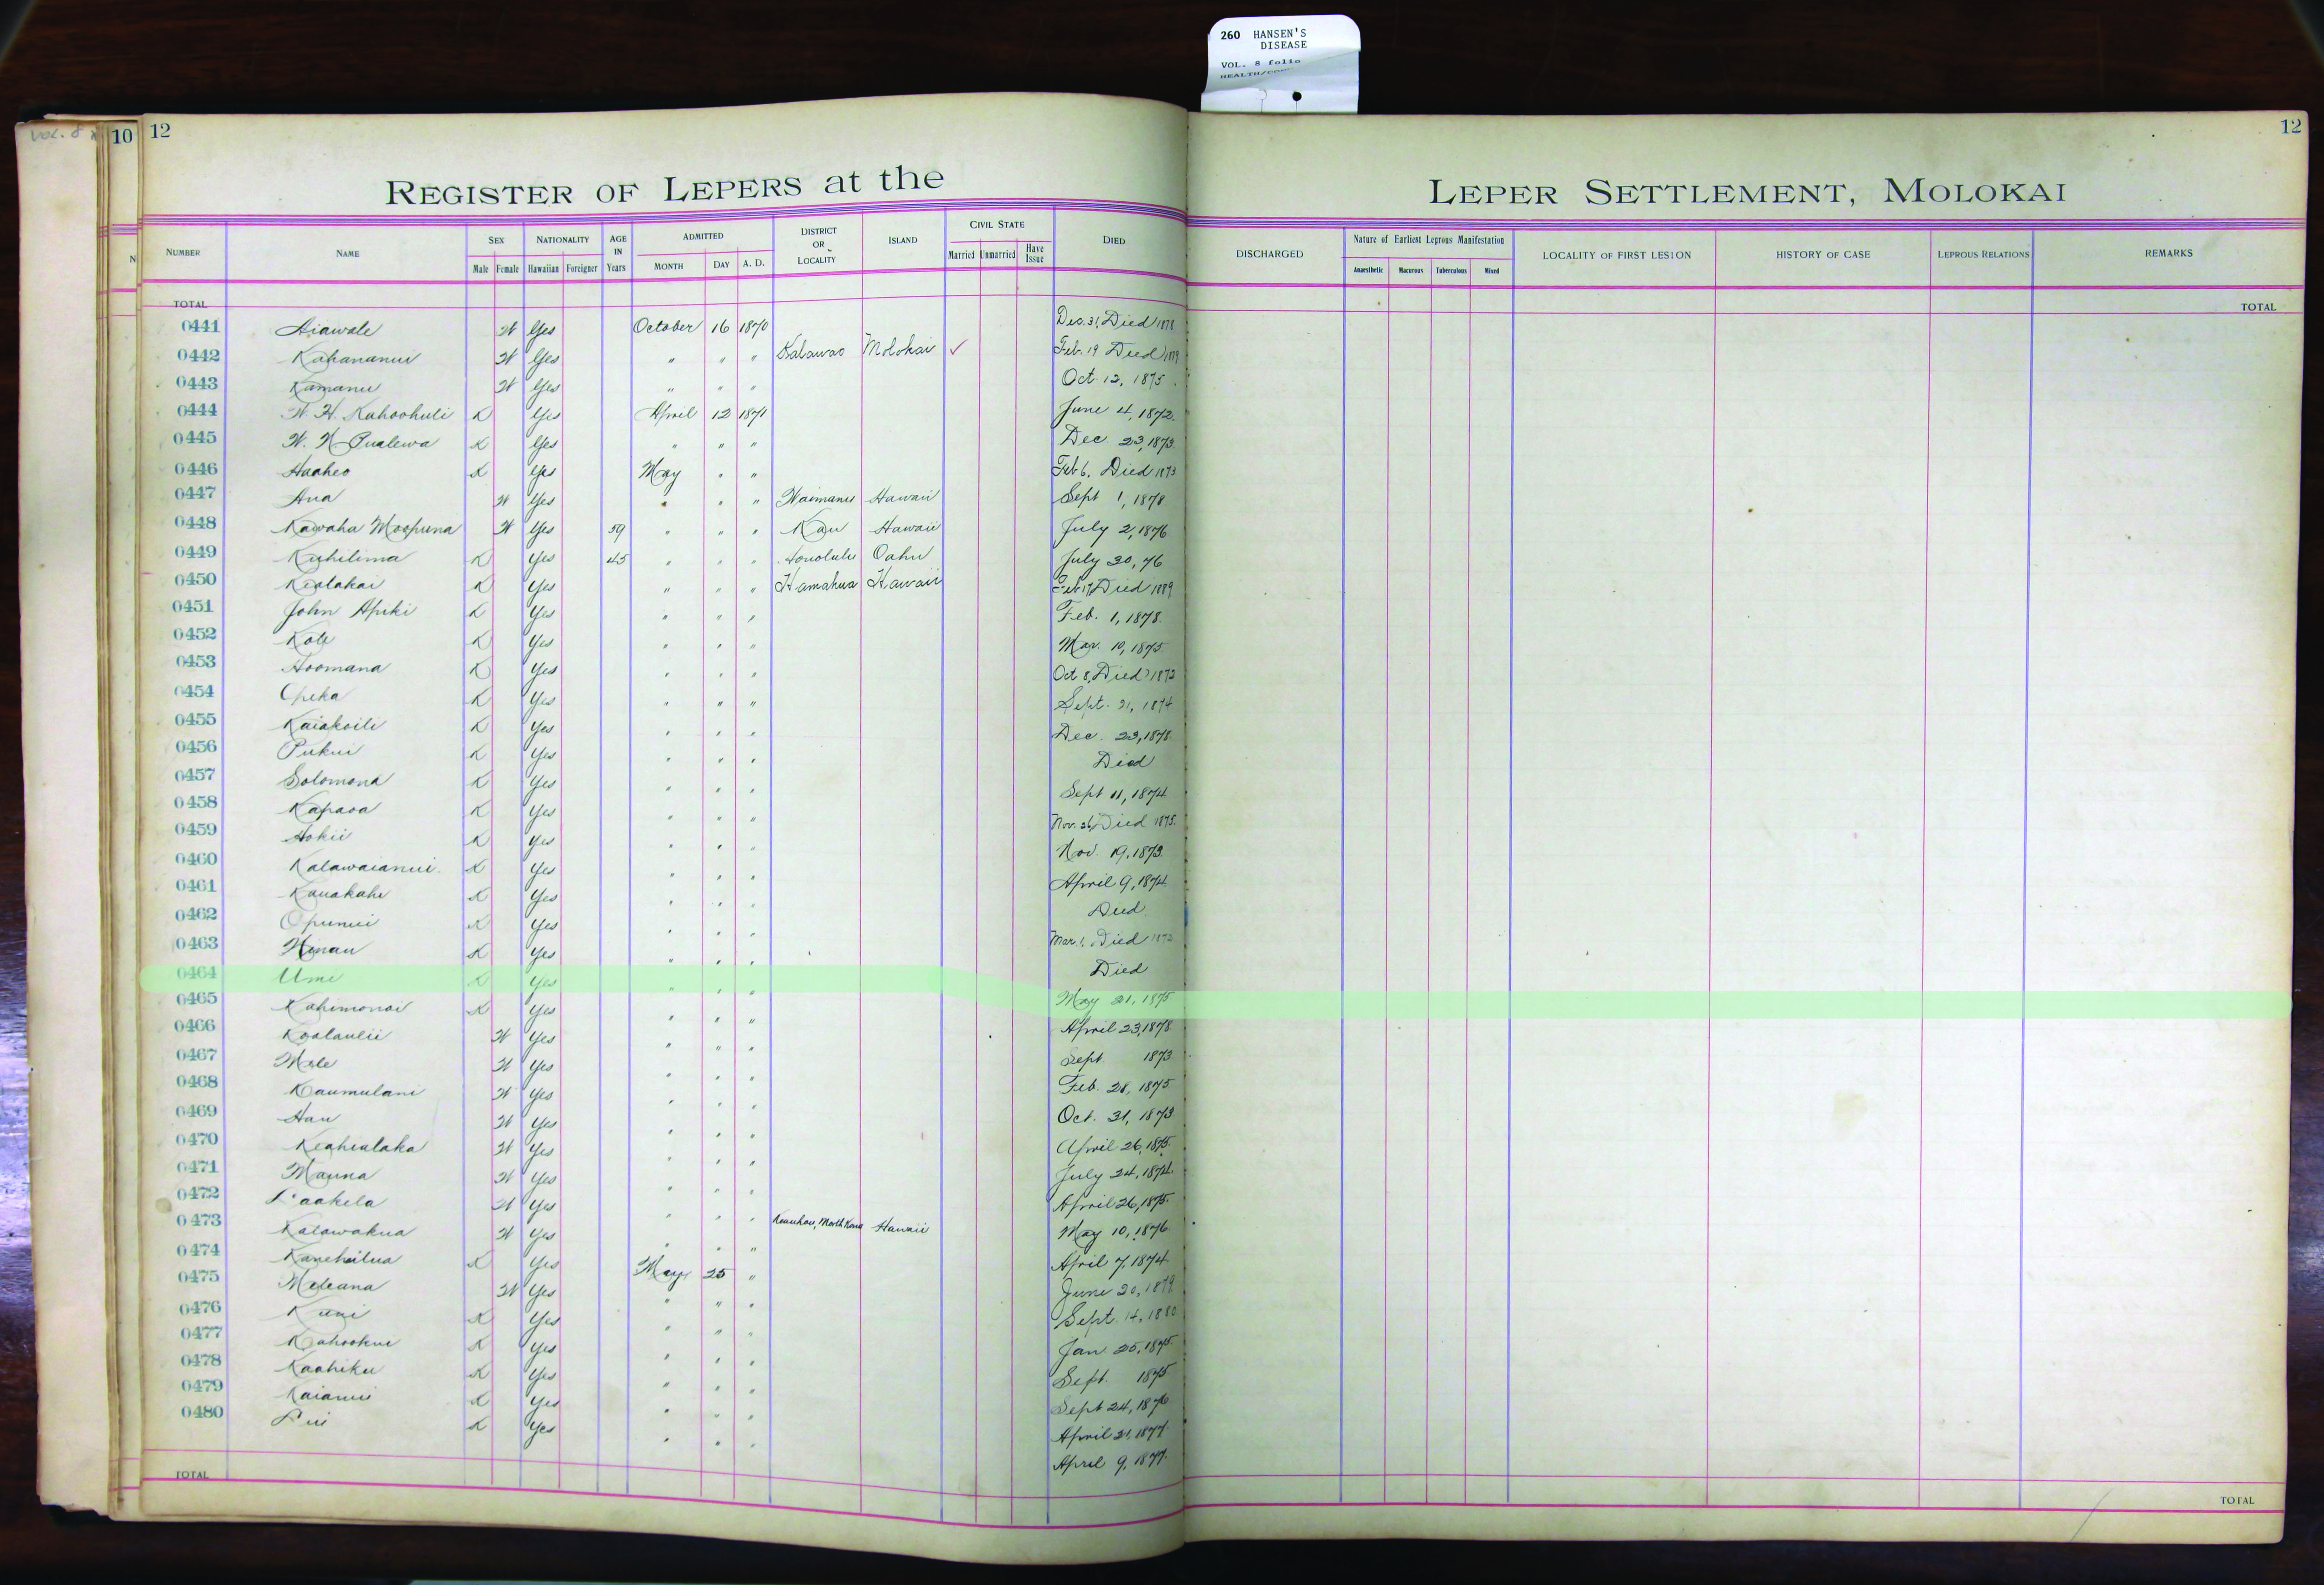 260 HANSEN'S
DISEASE
VOL. 8 folio
10 12
12
REGISTER OF LEPERS at the LEPER SETTLEMENT, MOLOKAI
NUMBER NAME SEX NATIONALITY AGE IN Years ADMITTED DISTRICT OR LOCALITY ISLAND CIVIL STATE DIED DISCHARGED Nature of Earliest Leprous Manifestation LOCALITY OF FIRST LESION HISTORY OF CASE LEPROUS RELATIONS REMARKS
Male Female Hawaiian Foreigner MONTH DAY A. D. Married Unmarried Have Issue Anaesthetic Macurous Tuberculous Mixed
TOTAL TOTAL
0441 Aiawale W Yes October 16 1870 Dec. 31, Died 1878
0442 Kahananui W Yes " " " Kalawao Molokai ✓ Feb. 19 Died
0443 Kamanu W Yes " " " Oct. 12, 1875
0444 W. H. Kahoohuli K Yes April 12 1871 June 4, 1872
0445 W. N. Pualewa K Yes " " " Dec. 23, 1873
0446 Haaheo K Yes May " " Feb 6, Died 1873
0447 Ana W Yes " " " Waimanu Hawaii Sept 1, 1878
0448 Kawaha Moopuna W Yes 59 " " " Kau Hawaii July 2, 1876
0449 Kuhilima K Yes 45 " " " Honolulu Oahu July 30, 76
0450 Kealakai K Yes " " " Hamakua Hawaii Feb 17, Died 1889
0451 John Apiki K Yes " " " Feb. 1, 1878
0452 Kole K Yes " " " Mar. 10, 1875
0453 Hoomana K Yes " " " Oct 8, Died 1873
0454 Opeka K Yes " " " Sept. 21, 1874
0455 Kaiakoili K Yes " " " Dec. 23, 1878
0456 Pukui K Yes " " " Died
0457 Solomona K Yes " " " Sept 11, 1874
0458 Kapaoa K Yes " " " Nov. 26, Died 1875
0459 Hokii K Yes " " " Nov. 19, 1873
0460 Kalawaianui K Yes " " " April 9, 1874
0461 Kauakahi K Yes " " " Died
0462 Opunui K Yes " " " Mar. 1, Died
0463 Hinau K Yes " " " Died
0464 Umi K Yes " " " May 21, 1875
0465 Kahimonoi K Yes " " " April 23, 1878
0466 Koolaulii W Yes " " " Sept 1873
0467 Mele W Yes " " " Feb. 28, 1875
0468 Kaumulani W Yes " " " Oct. 31, 1873
0469 Hau W Yes " " " April 26, 1875
0470 Keahialaka W Yes " " " July 24, 1874
0471 Mauna W Yes " " " April 26, 1875
0472 Laakela W Yes " " "
0473 Kalawakua W Yes " " " Keauhou, North Kona Hawaii May 10, 1876
0474 Kanehailua K Yes May 25 " April 7, 1874
0475 Meleana W Yes " " " June 20, 1879
0476 Kuni K Yes " " " Sept. 14, 1880
0477 Kahookui K Yes " " " Jan. 25, 1875
0478 Kaahiku K Yes " " " Sept. 1875
0479 Kaianui K Yes " " " Sept 24, 1876
0480 Lui K Yes " " " April 21, 1877
April 9, 1877
TOTAL TOTAL